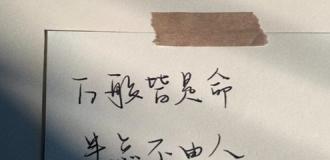 百般皆是命
半点不由人